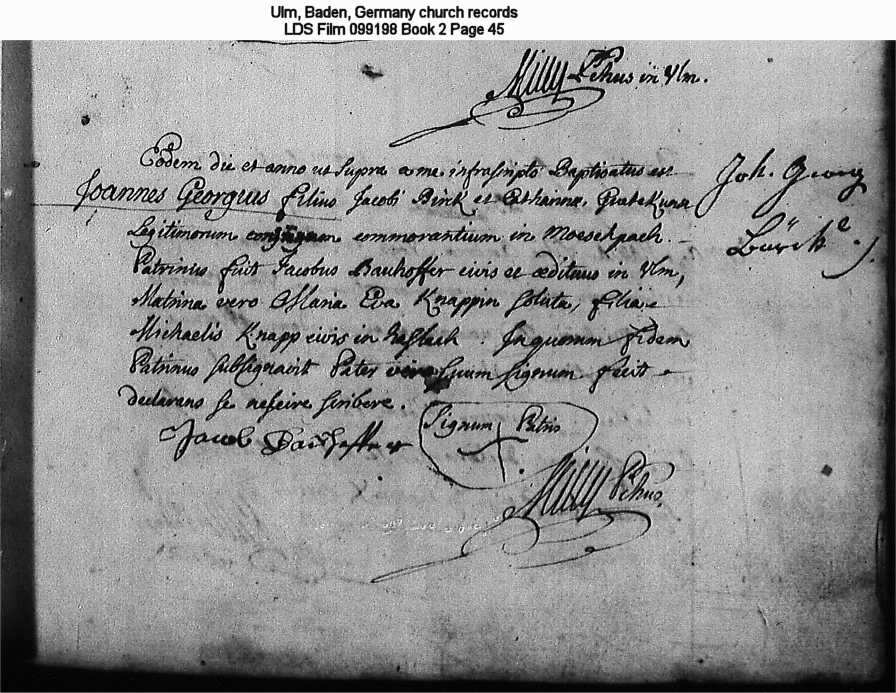 Ulm, Baden, Germany church records
LDS Film 099198 Book 2 Page 45
Milly Pchus in Ulm.
Eodem die et anno ut supra a me infrascripto Baptisatus est
Joannes Georgius filius Jacobi Birck et Catharinæ
Joh. Georg
Legitimorum conjugum commorantium in Moeschpach.
Bürck
Patrinus fuit Jacobus Bauhoffer civis et ædituus in Ulm,
Matrina vero Maria Eva Knappin soluta, filia
Michaelis Knapp civis in Haslach. In quorum fidem
Patrinus subsignavit Pater vero suum signum fecit
declarans se nescire scribere.
Signum Patris
Jacob Bauhoffer
Milly Pchus.